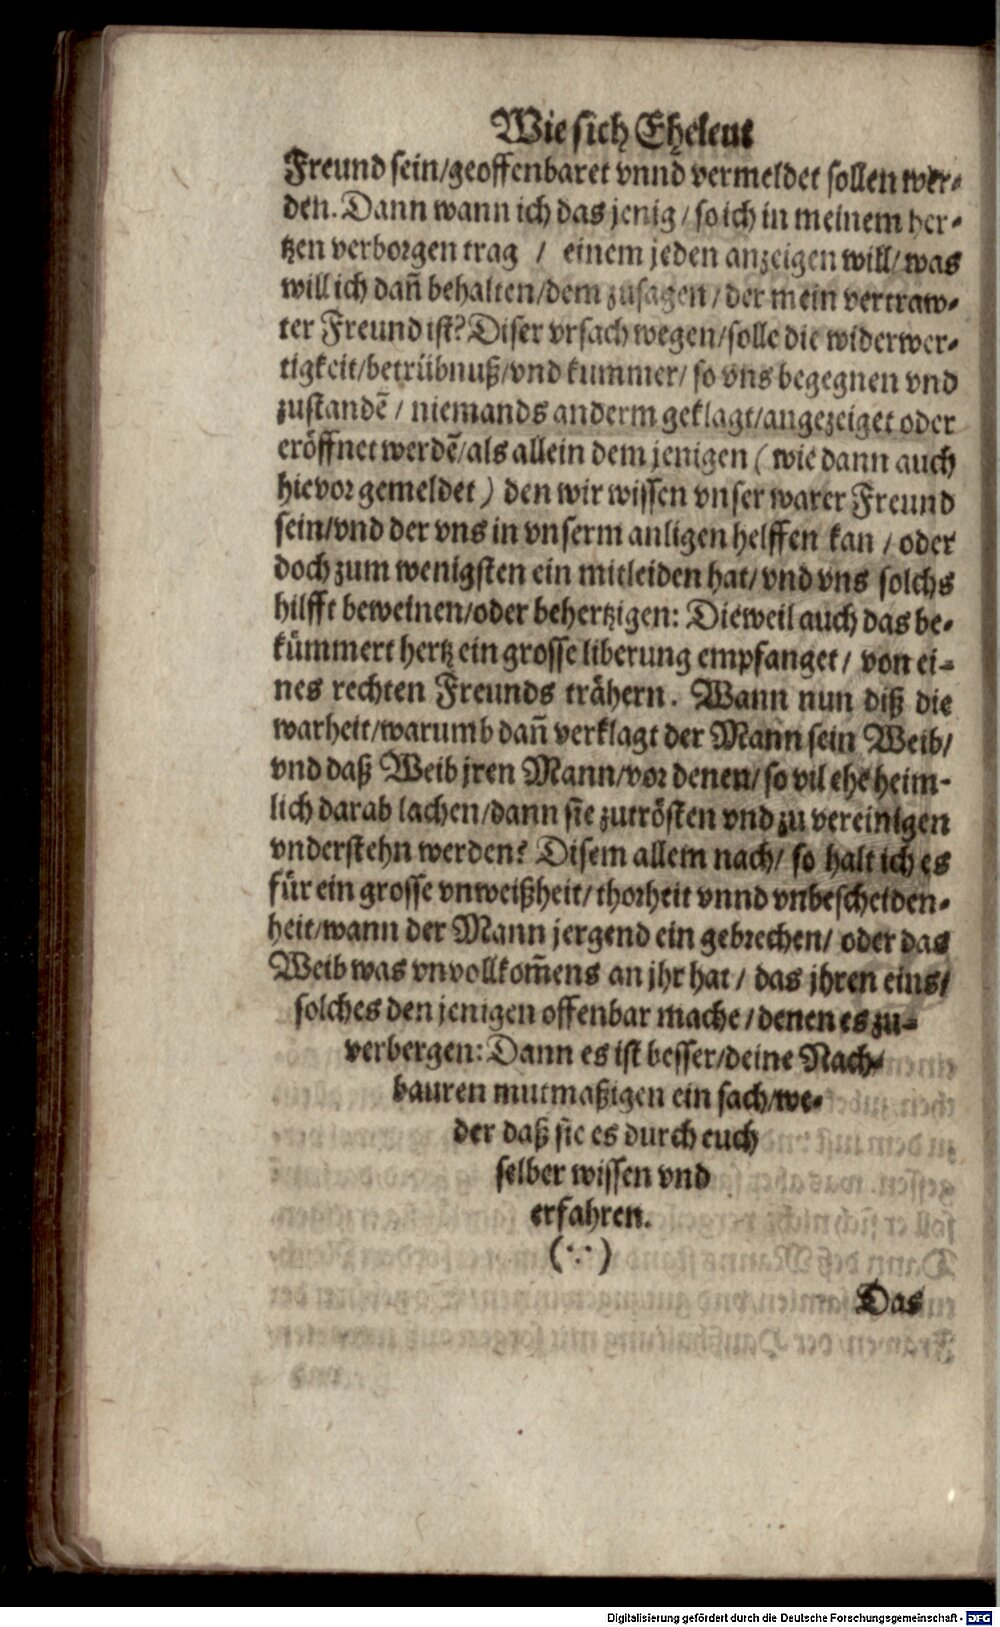 Wie sich Eheleut
Freund sein/geoffenbaret vnnd vermeldet sollen wer-
den. Dann wann ich das jenig / so ich in meinem her-
tzen verborgen trag / einem jeden anzeigen will/ was
will ich dañ behalten/dem zusagen/ der mein vertraw-
ter Freund ist? Diser vrsach wegen/solle die widerwer-
tigkeit/betrübnuß/vnd kummer/ so vns begegnen vnd
zustandẽ / niemands anderm geklagt/angezeiget oder
eröffnet werdẽ/als allein dem jenigen ( wie dann auch
hievor gemeldet ) den wir wissen vnser warer Freund
sein/vnd der vns in vnserm anligen helffen kan / oder
doch zum wenigsten ein mitleiden hat/ vnd vns solchs
hilfft beweinen/oder behertzigen: Dieweil auch das be-
kümmert hertz ein grosse liberung empfanget/ von ei-
nes rechten Freunds trähern. Wann nun diß die
warheit/warumb dañ verklagt der Mann sein Weib/
vnd daß Weib jren Mann/vor denen/ so vil ehe heim-
lich darab lachen/dann sie zutrösten vnd zu vereinigen
vnderstehn werden? Disem allem nach/ so halt ich es
für ein grosse vnweißheit/ thorheit vnnd vnbescheiden-
heit/wann der Mann jergend ein gebrechen/ oder das
Weib was vnvollkom̃ens an jhr hat / das jhren eins/
solches den jenigen offenbar mache / denen es zu-
verbergen: Dann es ist besser/deine Nach-
bauren mutmaßigen ein sach/we-
der daß sie es durch euch
selber wissen vnd
erfahren.
(∵)
Das
Digitalisierung gefördert durch die Deutsche Forschungsgemeinschaft - DFG